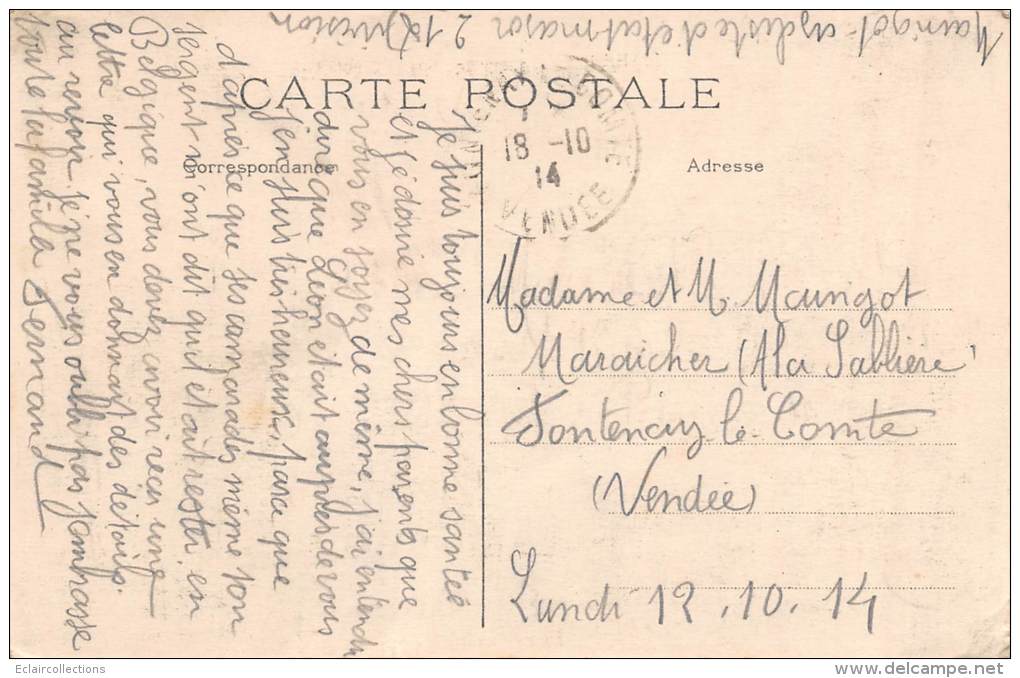 Maurigot cycliste d'état major 21
Division
CARTE POSTALE
Correspondance
Adresse
FONTENAY-LE-COMTE
18 -10
14
VENDEE
Je suis toujours en bonne santée
et je désire mes chers parents que
vous en soyez de même, j'ai entendu
dire que Léon était auprès de vous
j'en suis très heureux, parce que
d'après ce que ses camarades même son
sergent m'ont dit qu'il était resté en
Belgique, vous devez avoir reçu une
lettre qui vous en donnait des détails.
au revoir je ne vous oubli pas j'embrasse
toute la famille Fernand
Madame et M. Maurigot
Maraicher (A la Sablière)
Fontenay-le-Comte
(Vendée)
Lundi 12.10.14
Eclaircollections
delcampe.net